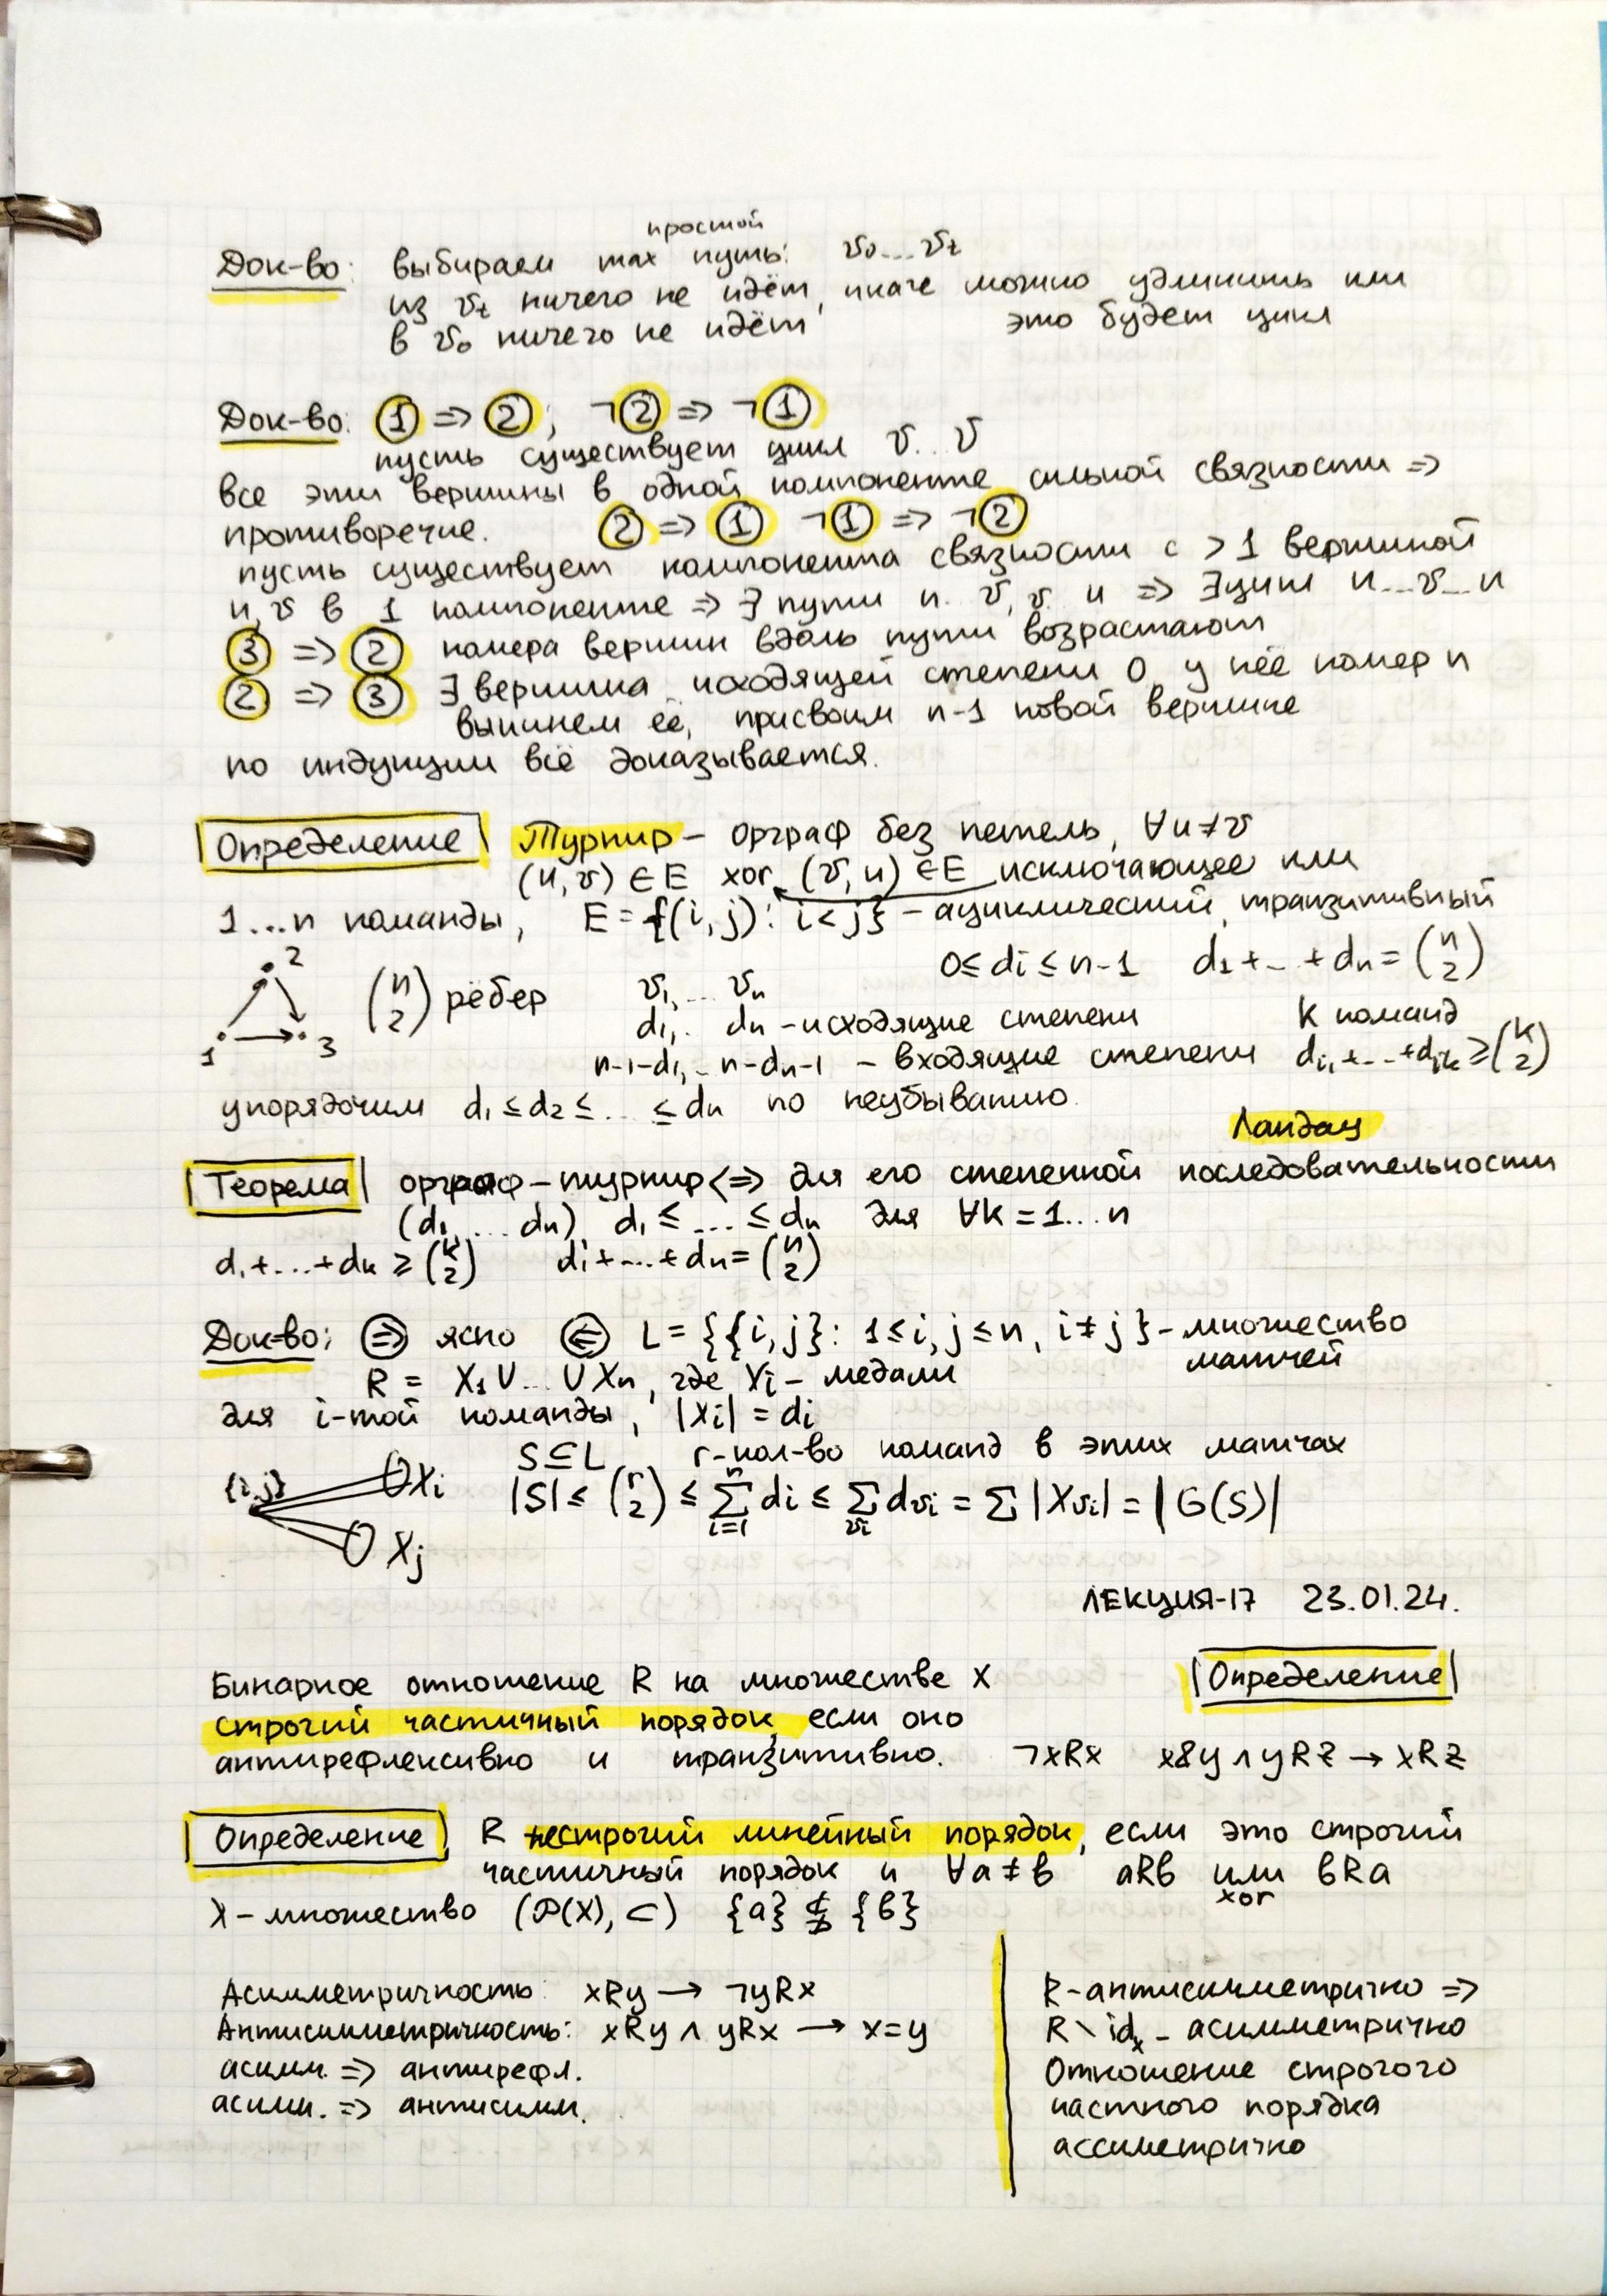 простой
Док-во: выбираем max путь: v₀...vₜ
из vₜ ничего не идёт, иначе можно удлинить или
в v₀ ничего не идёт это будет цикл
Док-во: ① => ②; ¬② => ¬①
пусть существует цикл v...v
все эти вершины в одной компоненте сильной связности =>
противоречие. ② => ① ¬① => ¬②
пусть существует компонента связности с > 1 вершиной
u, v в 1 компоненте => ∃ пути u..v, v..u => ∃ цикл u...v...u
③ => ② номера вершин вдоль пути возрастают
② => ③ ∃ вершина исходящей степени 0, у неё номер n
выкинем её, присвоим n-1 новой вершине
по индукции всё доказывается.
Определение Турнир – орграф без петель, ∀u≠v
(u,v) ∈ E xor (v,u) ∈ E исключающее или
1...n команды, E = {(i,j): i<j} – ациклический, транзитивный
2 0≤di≤n-1 d₁+...+dn = (n 2)
(n 2) рёбер v₁,...vn
1 3 d₁,.. dn – исходящие степени k команд
n-1-d₁,.. n-dn-1 – входящие степени di₁+...+dik ≥ (k 2)
упорядочим d₁≤d₂≤...≤dn по неубыванию.
Ландау
Теорема орграф – турнир <=> для его степенной последовательности
(d₁,...dn), d₁≤...≤dn для ∀k=1...n
d₁+...+dk ≥ (k 2) d₁+...+dn = (n 2)
Док-во: => ясно <= L = {{i,j}: 1≤i,j≤n, i≠j} – множество
матчей
R = X₁∪...∪Xn, где Xi – медали
для i-той команды, |Xi| = di
S⊆L r-кол-во команд в этих матчах
{i,j} Xi |S| ≤ (r 2) ≤ ∑ⁿᵢ₌₁ di ≤ ∑vi dvi = ∑|Xvi| = |G(S)|
Xj
ЛЕКЦИЯ-17 23.01.24.
Бинарное отношение R на множестве X Определение
строгий частичный порядок, если оно
антирефлексивно и транзитивно. ¬xRx xRy ∧ yRz → xRz
Определение R нестрогий линейный порядок, если это строгий
частичный порядок и ∀a≠b aRb или bRa
xor
X – множество (P(X), ⊂) {a} ⊈ {b}
Асимметричность: xRy → ¬yRx
Антисимметричность: xRy ∧ yRx → x=y
асимм. => антирефл.
асимм. => антисимм.
R-антисимметрично =>
R \ idx – асимметрично
Отношение строгого
частного порядка
ассиметрично